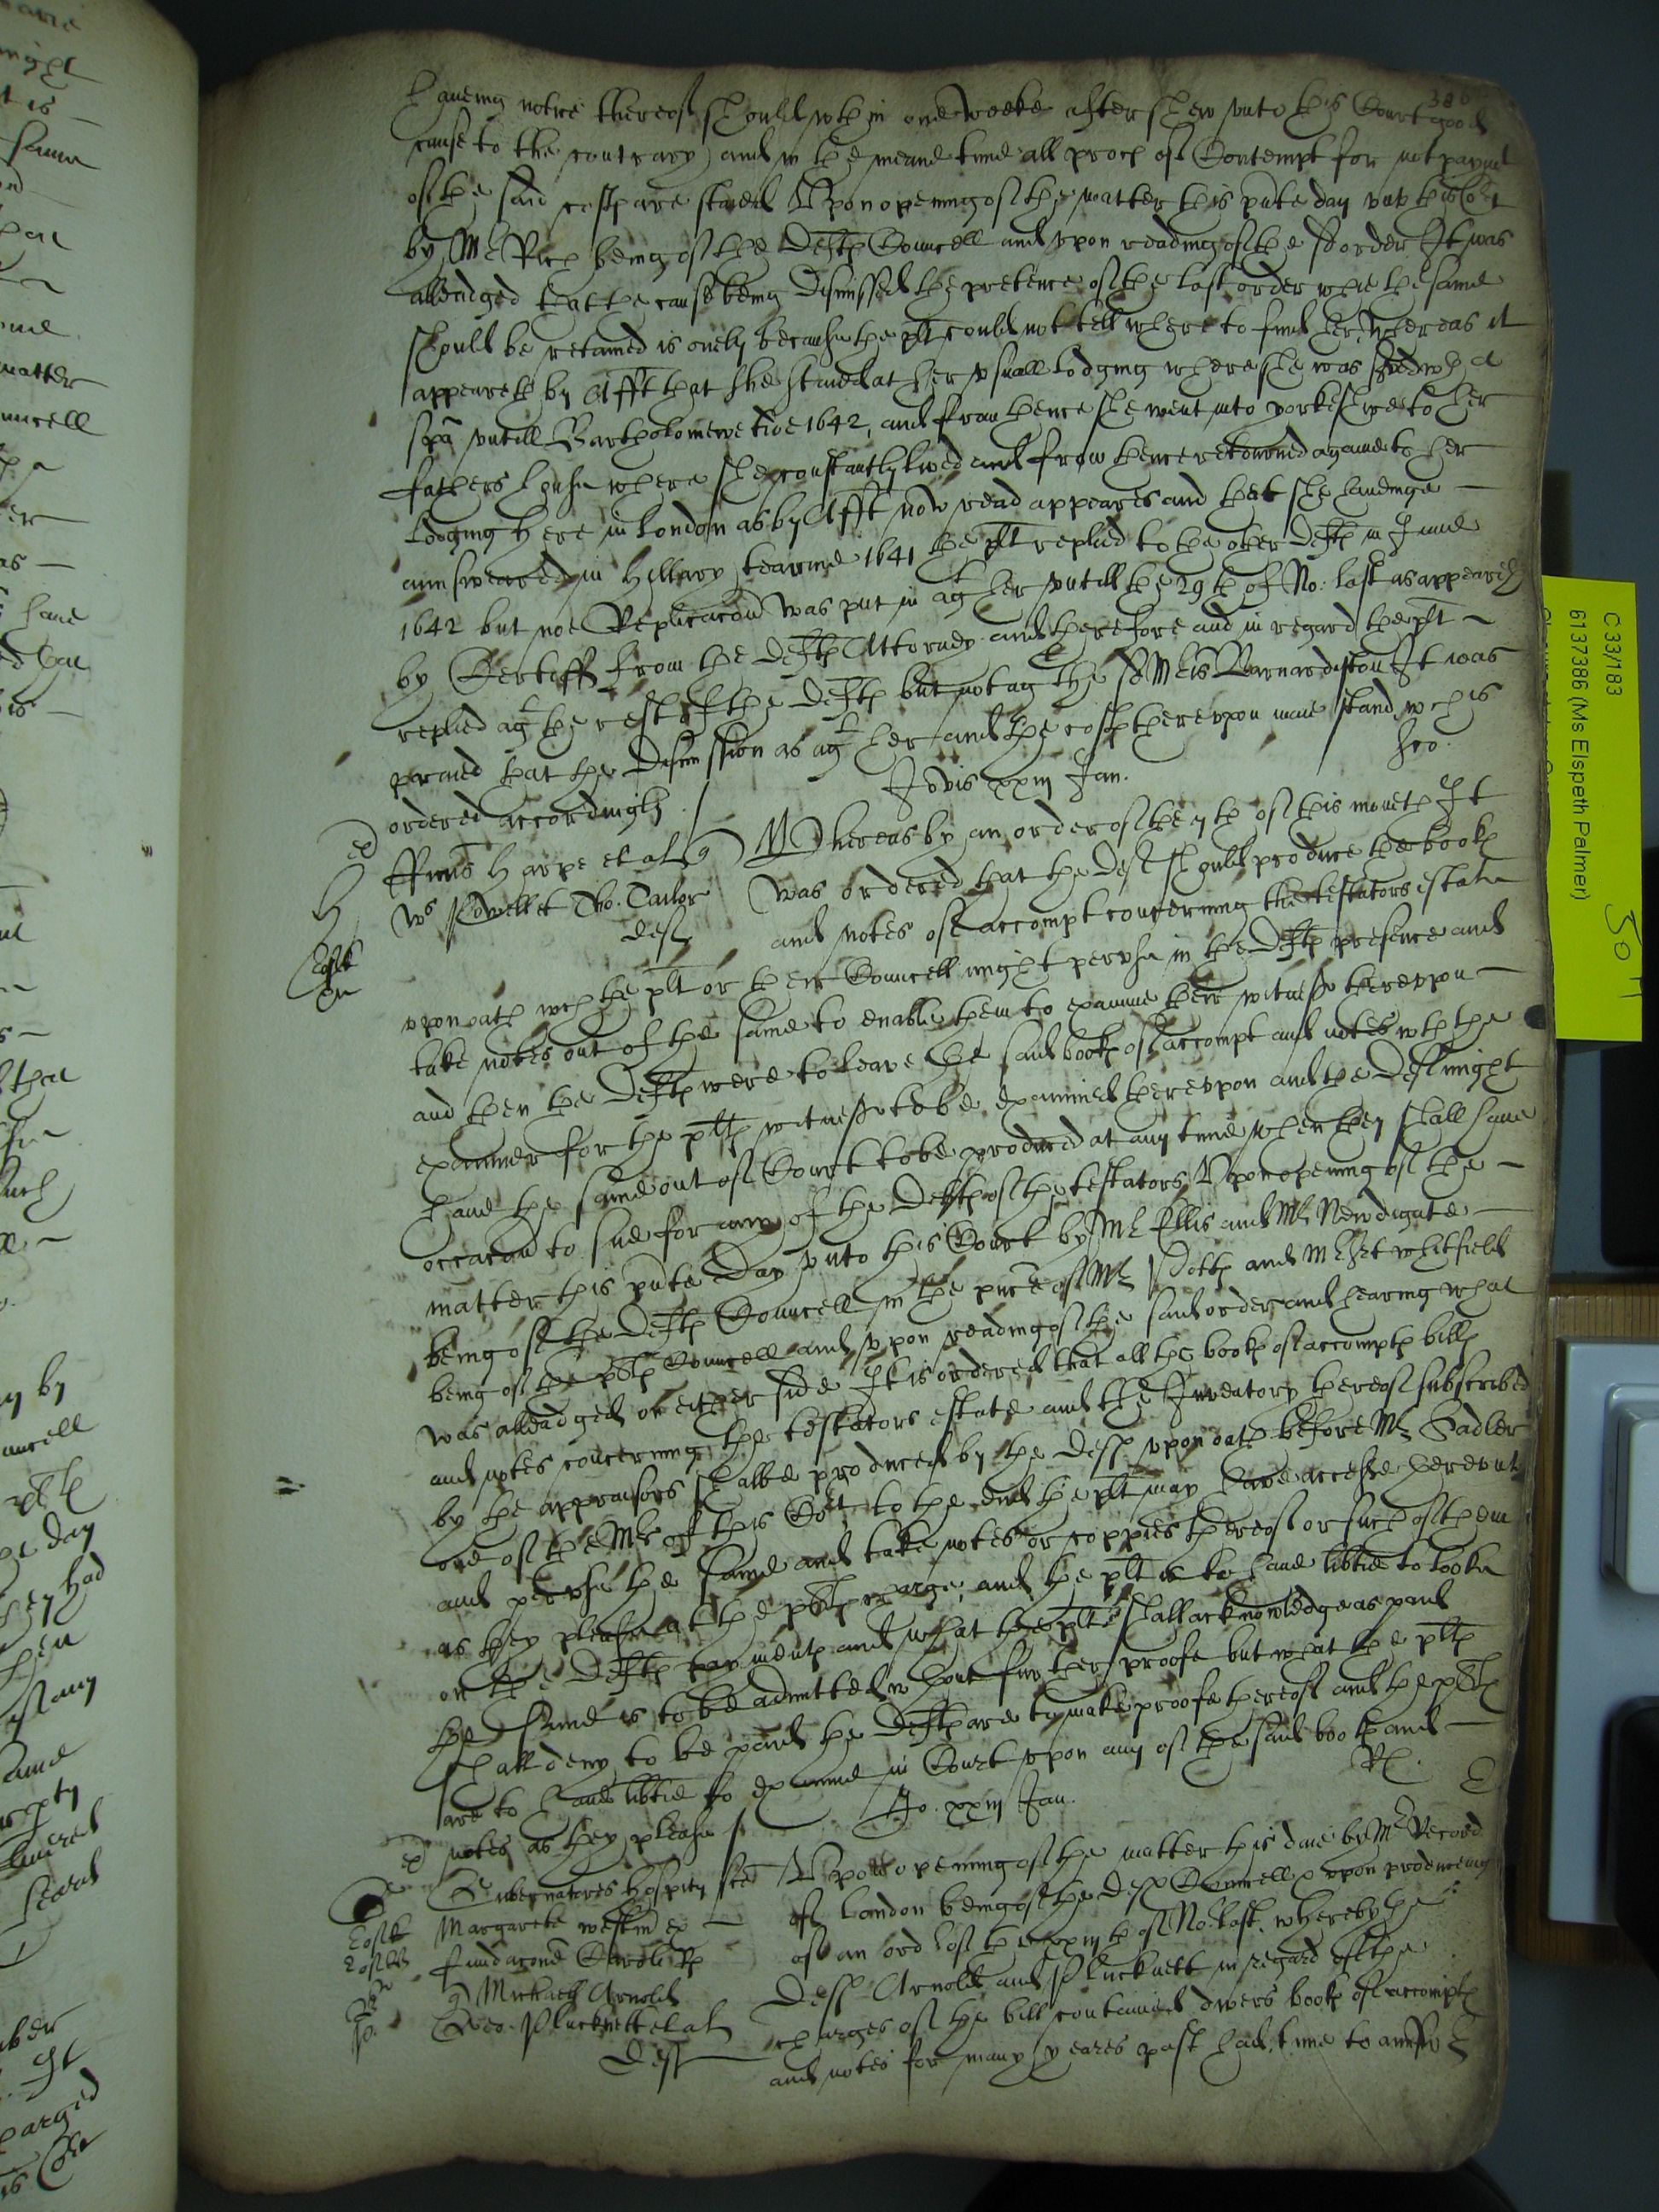 haueing notice thereof should wth in one weeke after shew vnto this Court good
cause to the contrary and in the meane time all proces of Contempt for not paymt
of the said costs are staied Vpon opening of the matter this pnte day vnto this Cort
by Mr Rich being of the Defts Councell and vpon reading of the sd order It was
alleadged that the cause being dismissed the pretence of the last order why the same
should be retained is onely because the plt could not tell where to find her, whereas it
appeareth by Afft that she staied at her vsuall lodging where she was served wth a
spa vntill Bartholomewe tide 1642, and from thence she went into yorkeshire to her
fathers house where she constantly lived and from thence retourned againe to her
lodging here in London as by Afft now read appeares and that she haueinge
aunsweared in Hillary tearme 1641 the plt replied to the other Defts in June
1642 but noe Replicacon was put in agt her vntill the 29th of No: last as appeareth
by Certiff from the Defts Attorney and therefore and in regard the plt
replied agt the rest of the Defts but not agt the sd Mris Barnardiston It was
praied that the dismission as agt her and the costs therevpon maie stand wch is
ordered accordingly
Jovis xxiii Jan.
Harpe et al q
Whereas by an order of the yth of this moneth It
ws Powell et Tho. Tailor
was ordered that the Deft should produce the books
Deft
and notes of accompt concerning the testators estate
Costs
vpon oath wch the plt or their Councell might peruse in the Defts presence and
take notes out of the same to enable them to examine their witnesses therevpon
and then the Defts were to leave the said books of accompt and notes wth the
examiner for the plts witnesses to be examined therevpon and the Deft might
haue the same out of Court to be produced at any time when they shall haue
occacon to sue for any of the Debts of the testators Vpon opening of the
matter this pnte Day vnto this Court by Mr Ellis and Mr Newdigate
being of the Defts Councell in the pnce of Mr Potts and Mr Whitfield
being of the plts Councell and vpon reading of the said order and hearing what
was alleadged on either side It is ordered that all the books of accompts bills
and notes concerning the testators estate and the Inventory thereof subscribed
by the appraisors shalbe produced by the Deft vpon oath before Mr Sadler
one of the Mrs of this Cort to the end the plt may have accesse therevnto
and peruse the same and take notes or coppies thereof or such of them
as they please at the plts charge, and the plt is to haue libtie to looke
on the Defts paymts and what the plts shall acknowledge as paid
the same is to be admitted wthout further proofe but what the plts
shall deny to be paid the Defts are to make proofe thereof and the plts
are to haue libtie to examine in Court vpon any of the said books and
notes as they please
Jo. xxiii Jan.
Gubernatores hospitij sce
Vpon opening of the matter this daie by Mr Record
Margarete westm ex
of London being of the Deft Councell vpon produceing
Costs
fundacone Caroli Rs
of an ord of the xxiiith of No: last. whereby the
q Michaell Arnold
Deft Arnold and Plucknett in regard of the
Geo. Plucknett et al
charges of the bill contained divers books of accompts
Deft
and notes for many yeares past had time to answr
C 33/183
6137386 (Ms Elspeth Palmer)